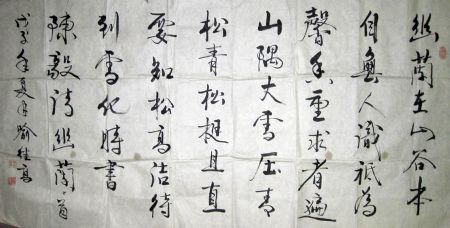 幽蘭在山谷本
自無人識祇為
馨香重求者遍
山隅大雪壓青
松青松挺且直
要知松高潔待
到雪化時書
陳毅詩幽蘭首
戊子年夏月